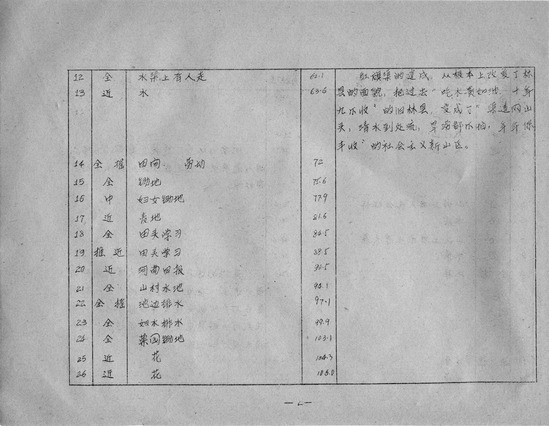 12 全 水渠上有人走 61.1 红旗渠的建成，从根本上改变了林
13 近 水 63.6 县的面貌，把过去“吃水贵如油，十年
九不收”的旧林县，变成了“渠道网山
头，清水到处流，旱涝都不怕，年年保
丰收”的社会主义新山区。
14 全摇 田间 劳动 72
15 全 锄地 75.6
16 中 妇女锄地 77.9
17 近 地 81.6
18 全 田头学习 84.5
19 推近 田头学习 88.5
20 近 河南日报 91.5
21 全 山村水地 94.1
22 全摇 池边排水 97.1
23 全 水排水 99.9
24 全 菜园锄地 103.1
25 近 花 104.3
26 近 花
—2—